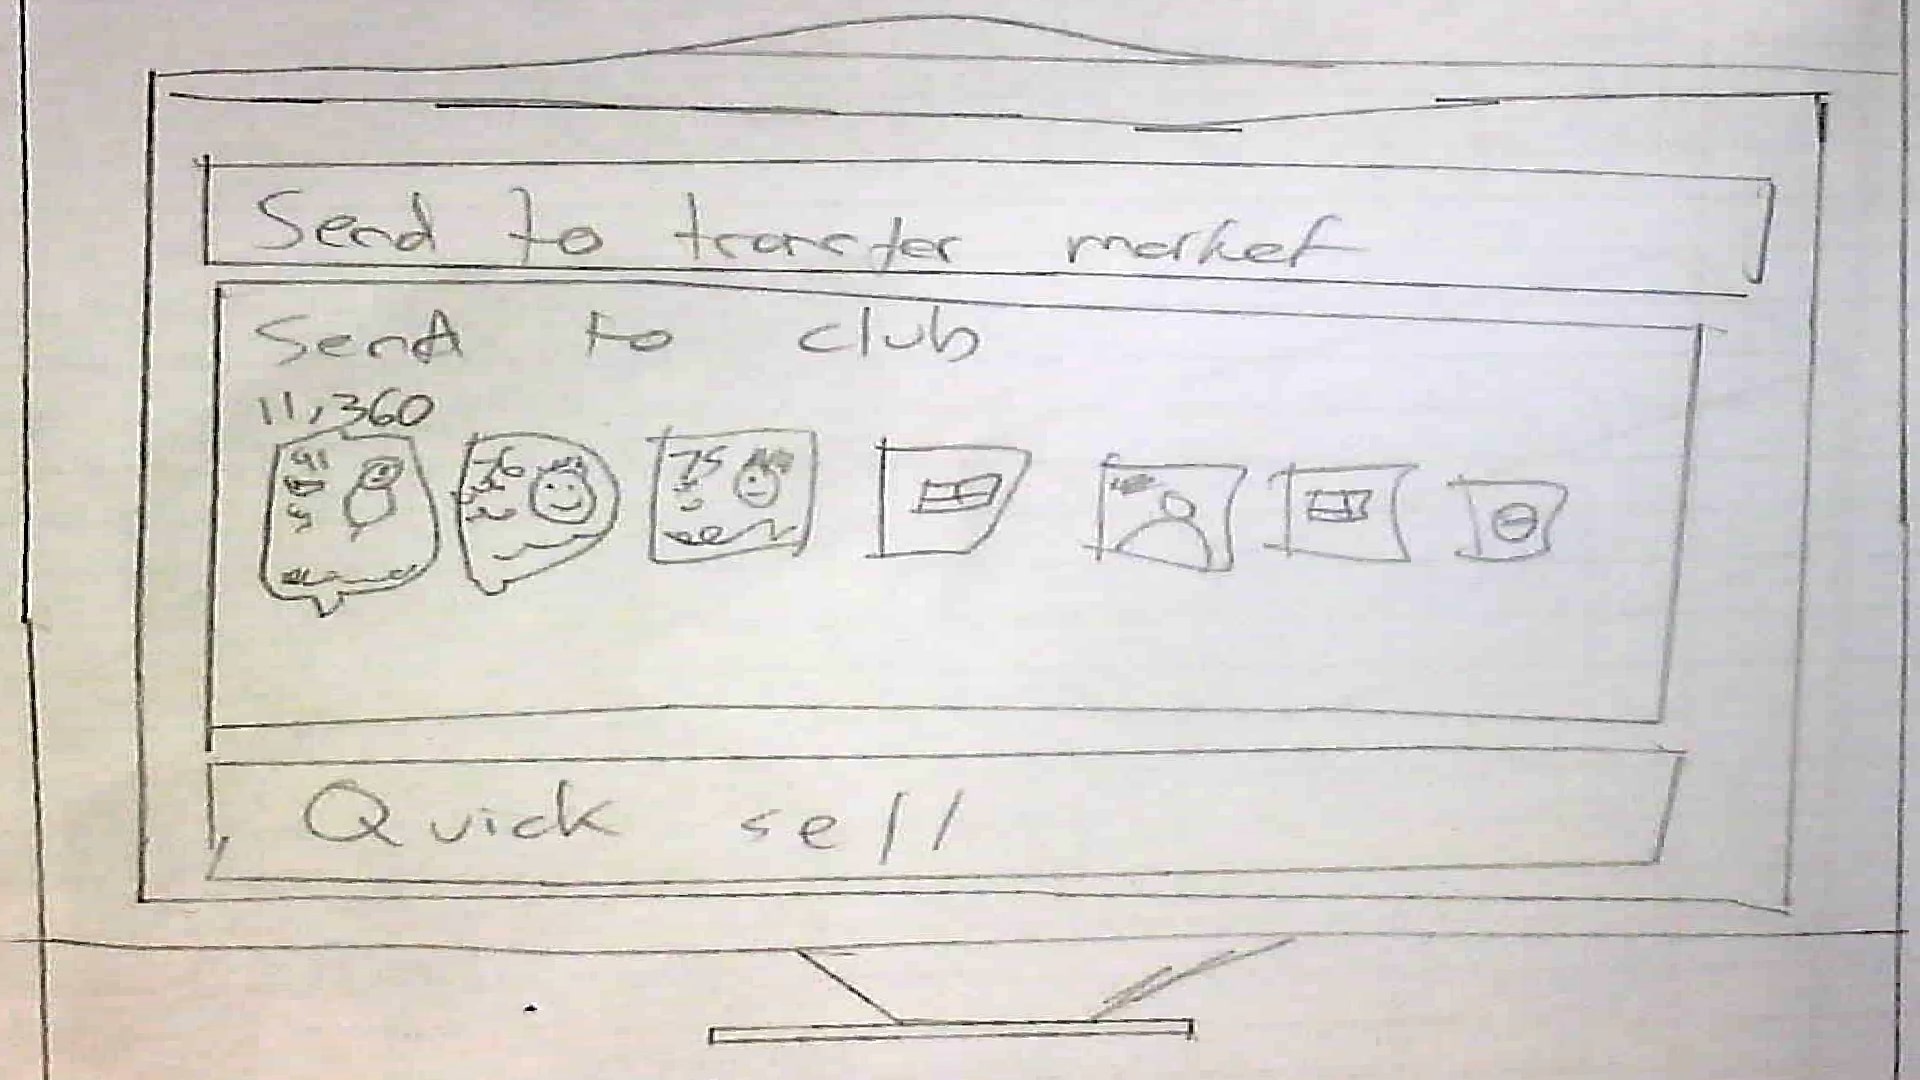 Send to transfer market
Send to club
11,360
91
76
75
Quick sell